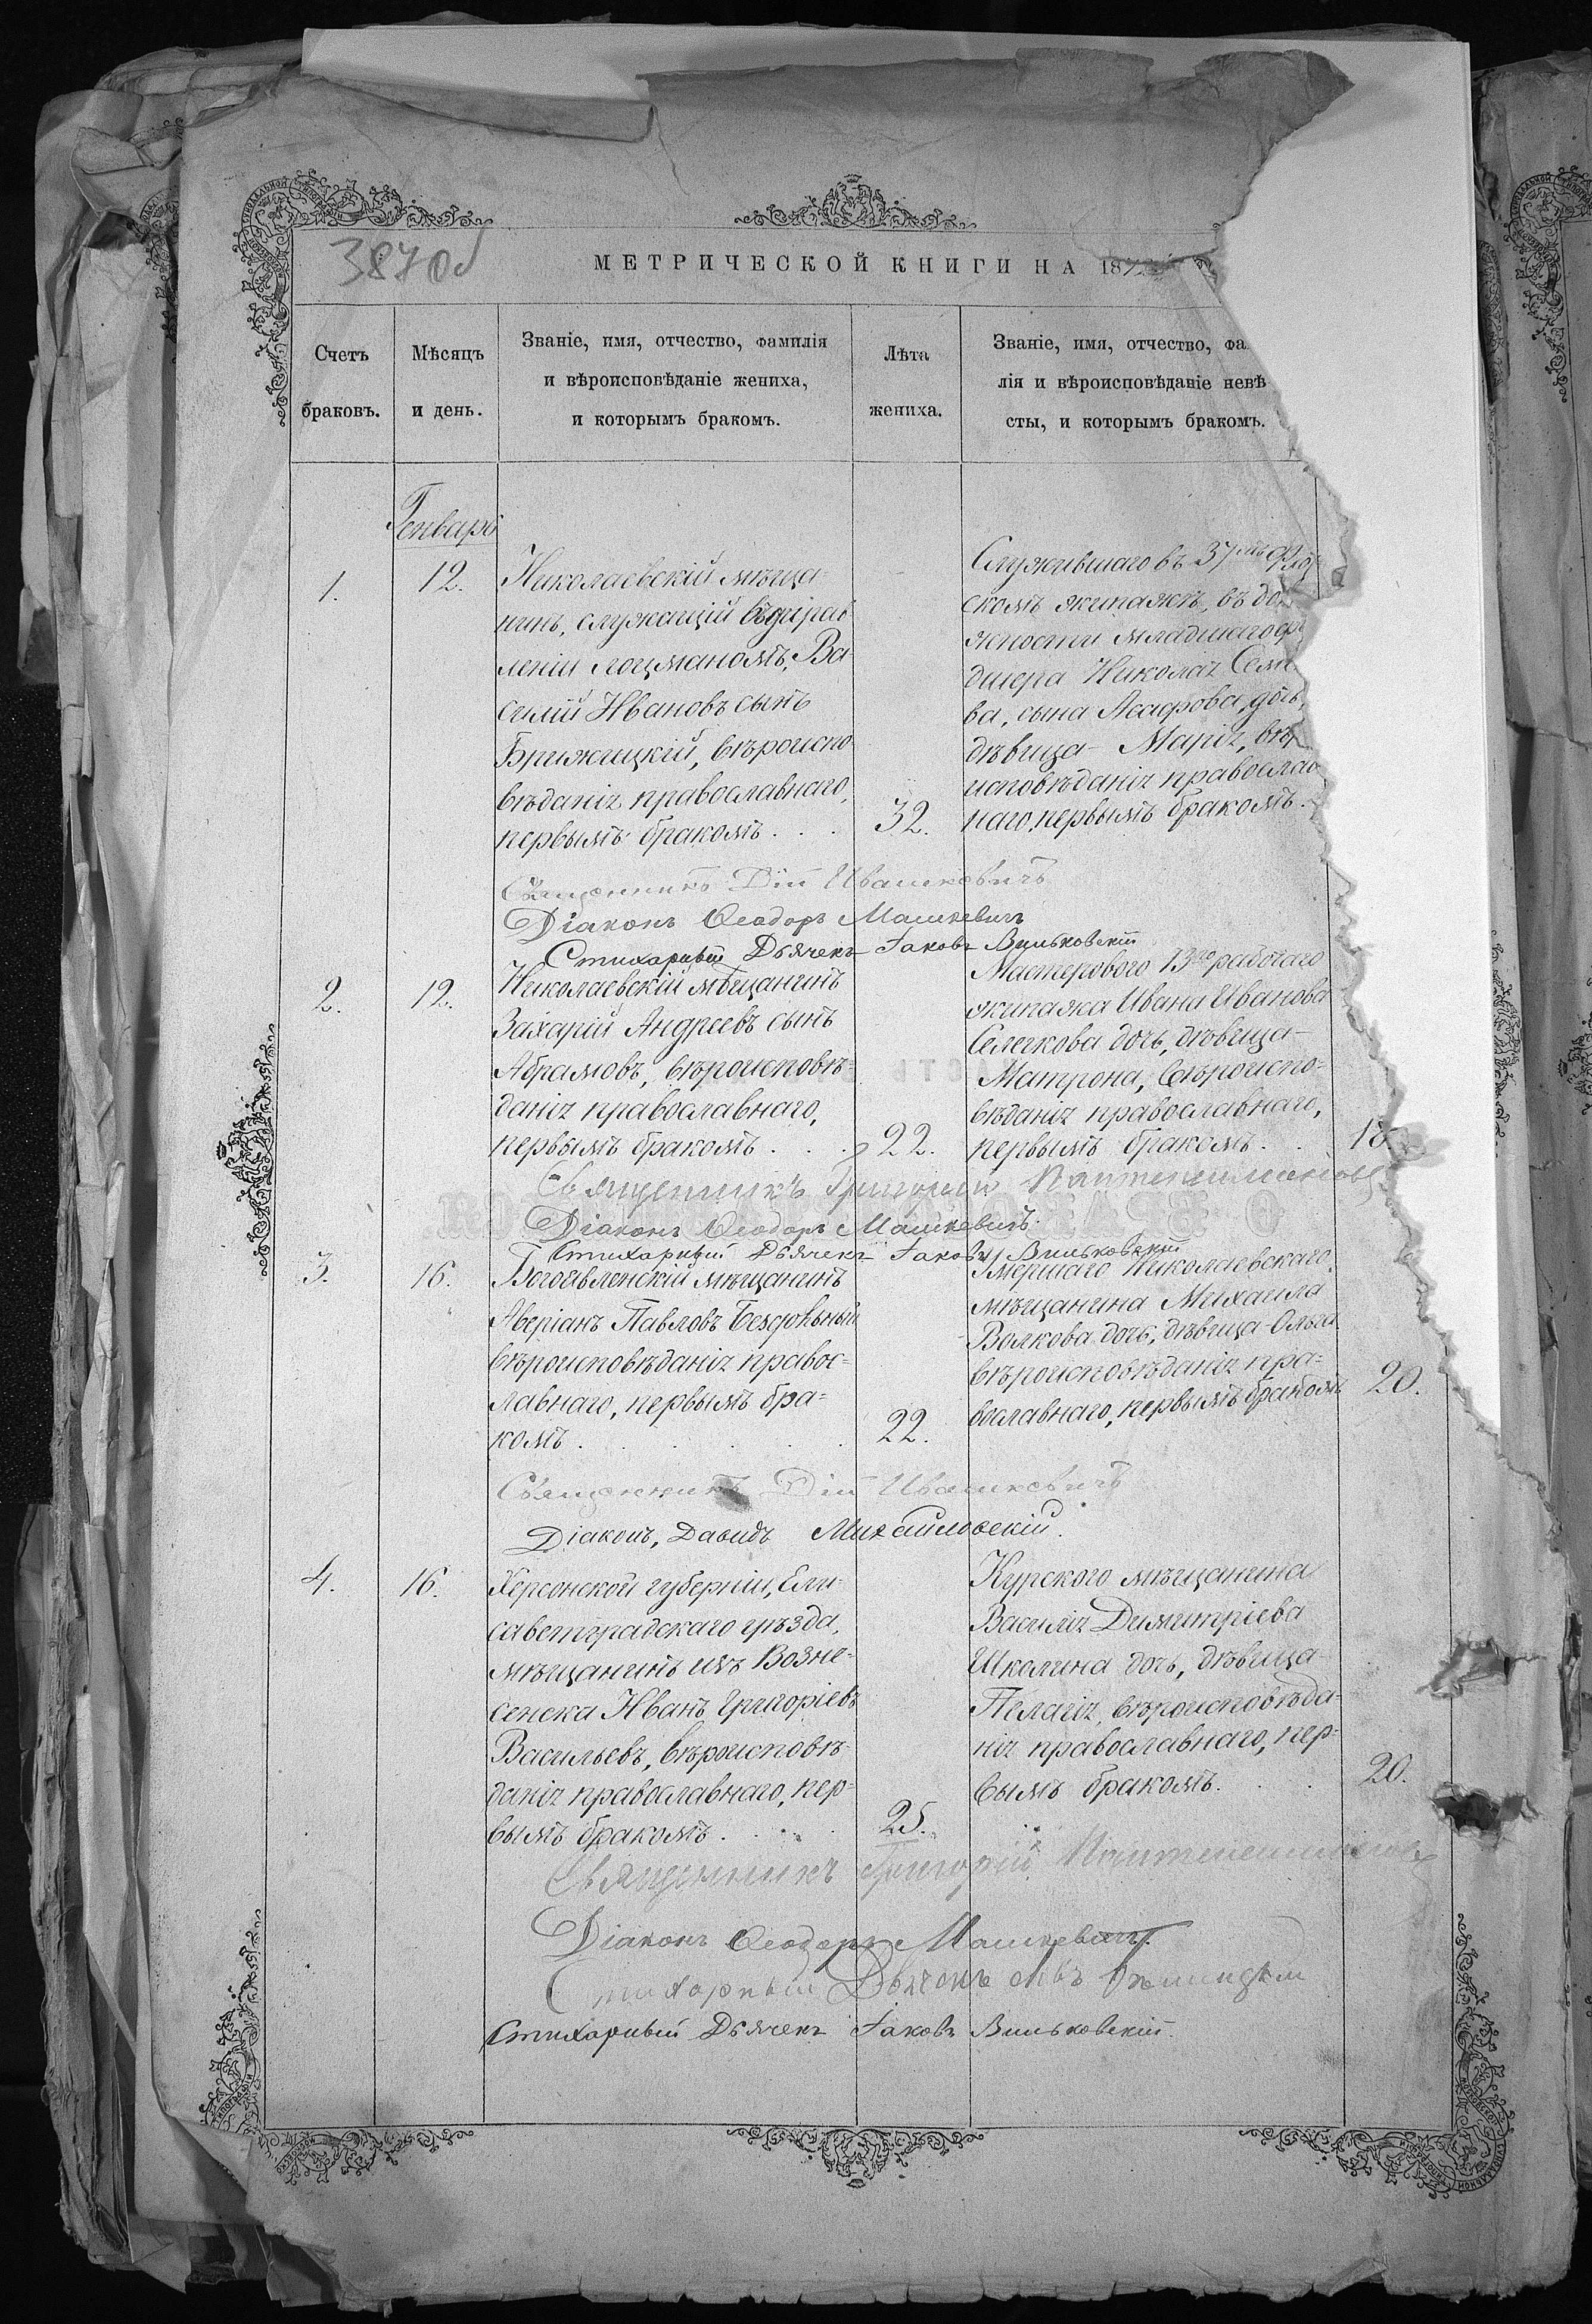 387об
МЕТРИЧЕСКОЙ КНИГИ НА 187
Счетъ
браковъ.
Мѣсяцъ
и день.
Званіе, имя, отчество, фамилія
и вѣроисповѣданіе жениха,
и которымъ бракомъ.
Лѣта
жениха.
Званіе, имя, отчество, фа
лія и вѣроисповѣданіе невѣ
сты, и которымъ бракомъ.
Генварь
1.
12.
Николаевскій мѣща-
нинъ, служащій въ управ
леніи лоцманомъ, Ва-
силій Ивановъ сынъ
Брижицкій, вѣроиспо
вѣданія православнаго,
первымъ бракомъ . . .
32.
Служившаго въ 37мъ Флот
скомъ экипажѣ, въ до
жности младшаго
Николая Семе
ва, сына Асафова, дочь,
дѣвица Марія, вѣр
исповѣданія православ
наго, первымъ бракомъ.
Священникъ Дій Ивашковичъ
Діаконъ Ѳеодоръ Машкевичъ
Стихарный Дьячекъ Іаковъ Вильковскій
2.
12.
Николаевскій мѣщанинъ
Захарій Андреевъ сынъ
Абрамовъ, вѣроисповѣ-
данія православнаго,
первымъ бракомъ . . .
22.
Мастероваго 13го рабочаго
экипажа Ивана Иванова
Селекова дочь, дѣвица
Матрона, вѣроиспо-
вѣданія православнаго,
первымъ бракомъ . .
18.
Священникъ Григорій
Діаконъ Ѳеодоръ Машкевичъ.
Стихарный Дьячекъ Іаковъ Вильковскій
3.
16.
Богоявленскій мѣщанинъ
Аверіанъ Павловъ
вѣроисповѣданія правос-
лавнаго, первымъ бра-
комъ . . . . .
22.
Умершаго Николаевскаго
мѣщанина Михаила
Волкова дочь, дѣвица Ольга
вѣроисповѣданія пра-
вославнаго, первымъ бракомъ
20.
Священникъ Дій Ивашковичъ
Діаконъ, Давидъ Михайловскій.
4.
16.
Херсонской губерніи, Ели-
саветградскаго уѣзда,
мѣщанинъ изъ Возне-
сенска Иванъ Григоріевъ
Васильевъ, вѣроисповѣ-
данія православнаго, пер-
вымъ бракомъ . . . .
25.
Курскаго мѣщанина
Василія Димитріева
Школина дочь, дѣвица
Пелагія, вѣроисповѣда-
нія православнаго, пер-
вымъ бракомъ. . .
20.
Священникъ Григорій
Діаконъ Ѳеодоръ Машкевичъ.
Стихарный Дьячекъ
Стихарный Дьячекъ Іаковъ Вильковскій.